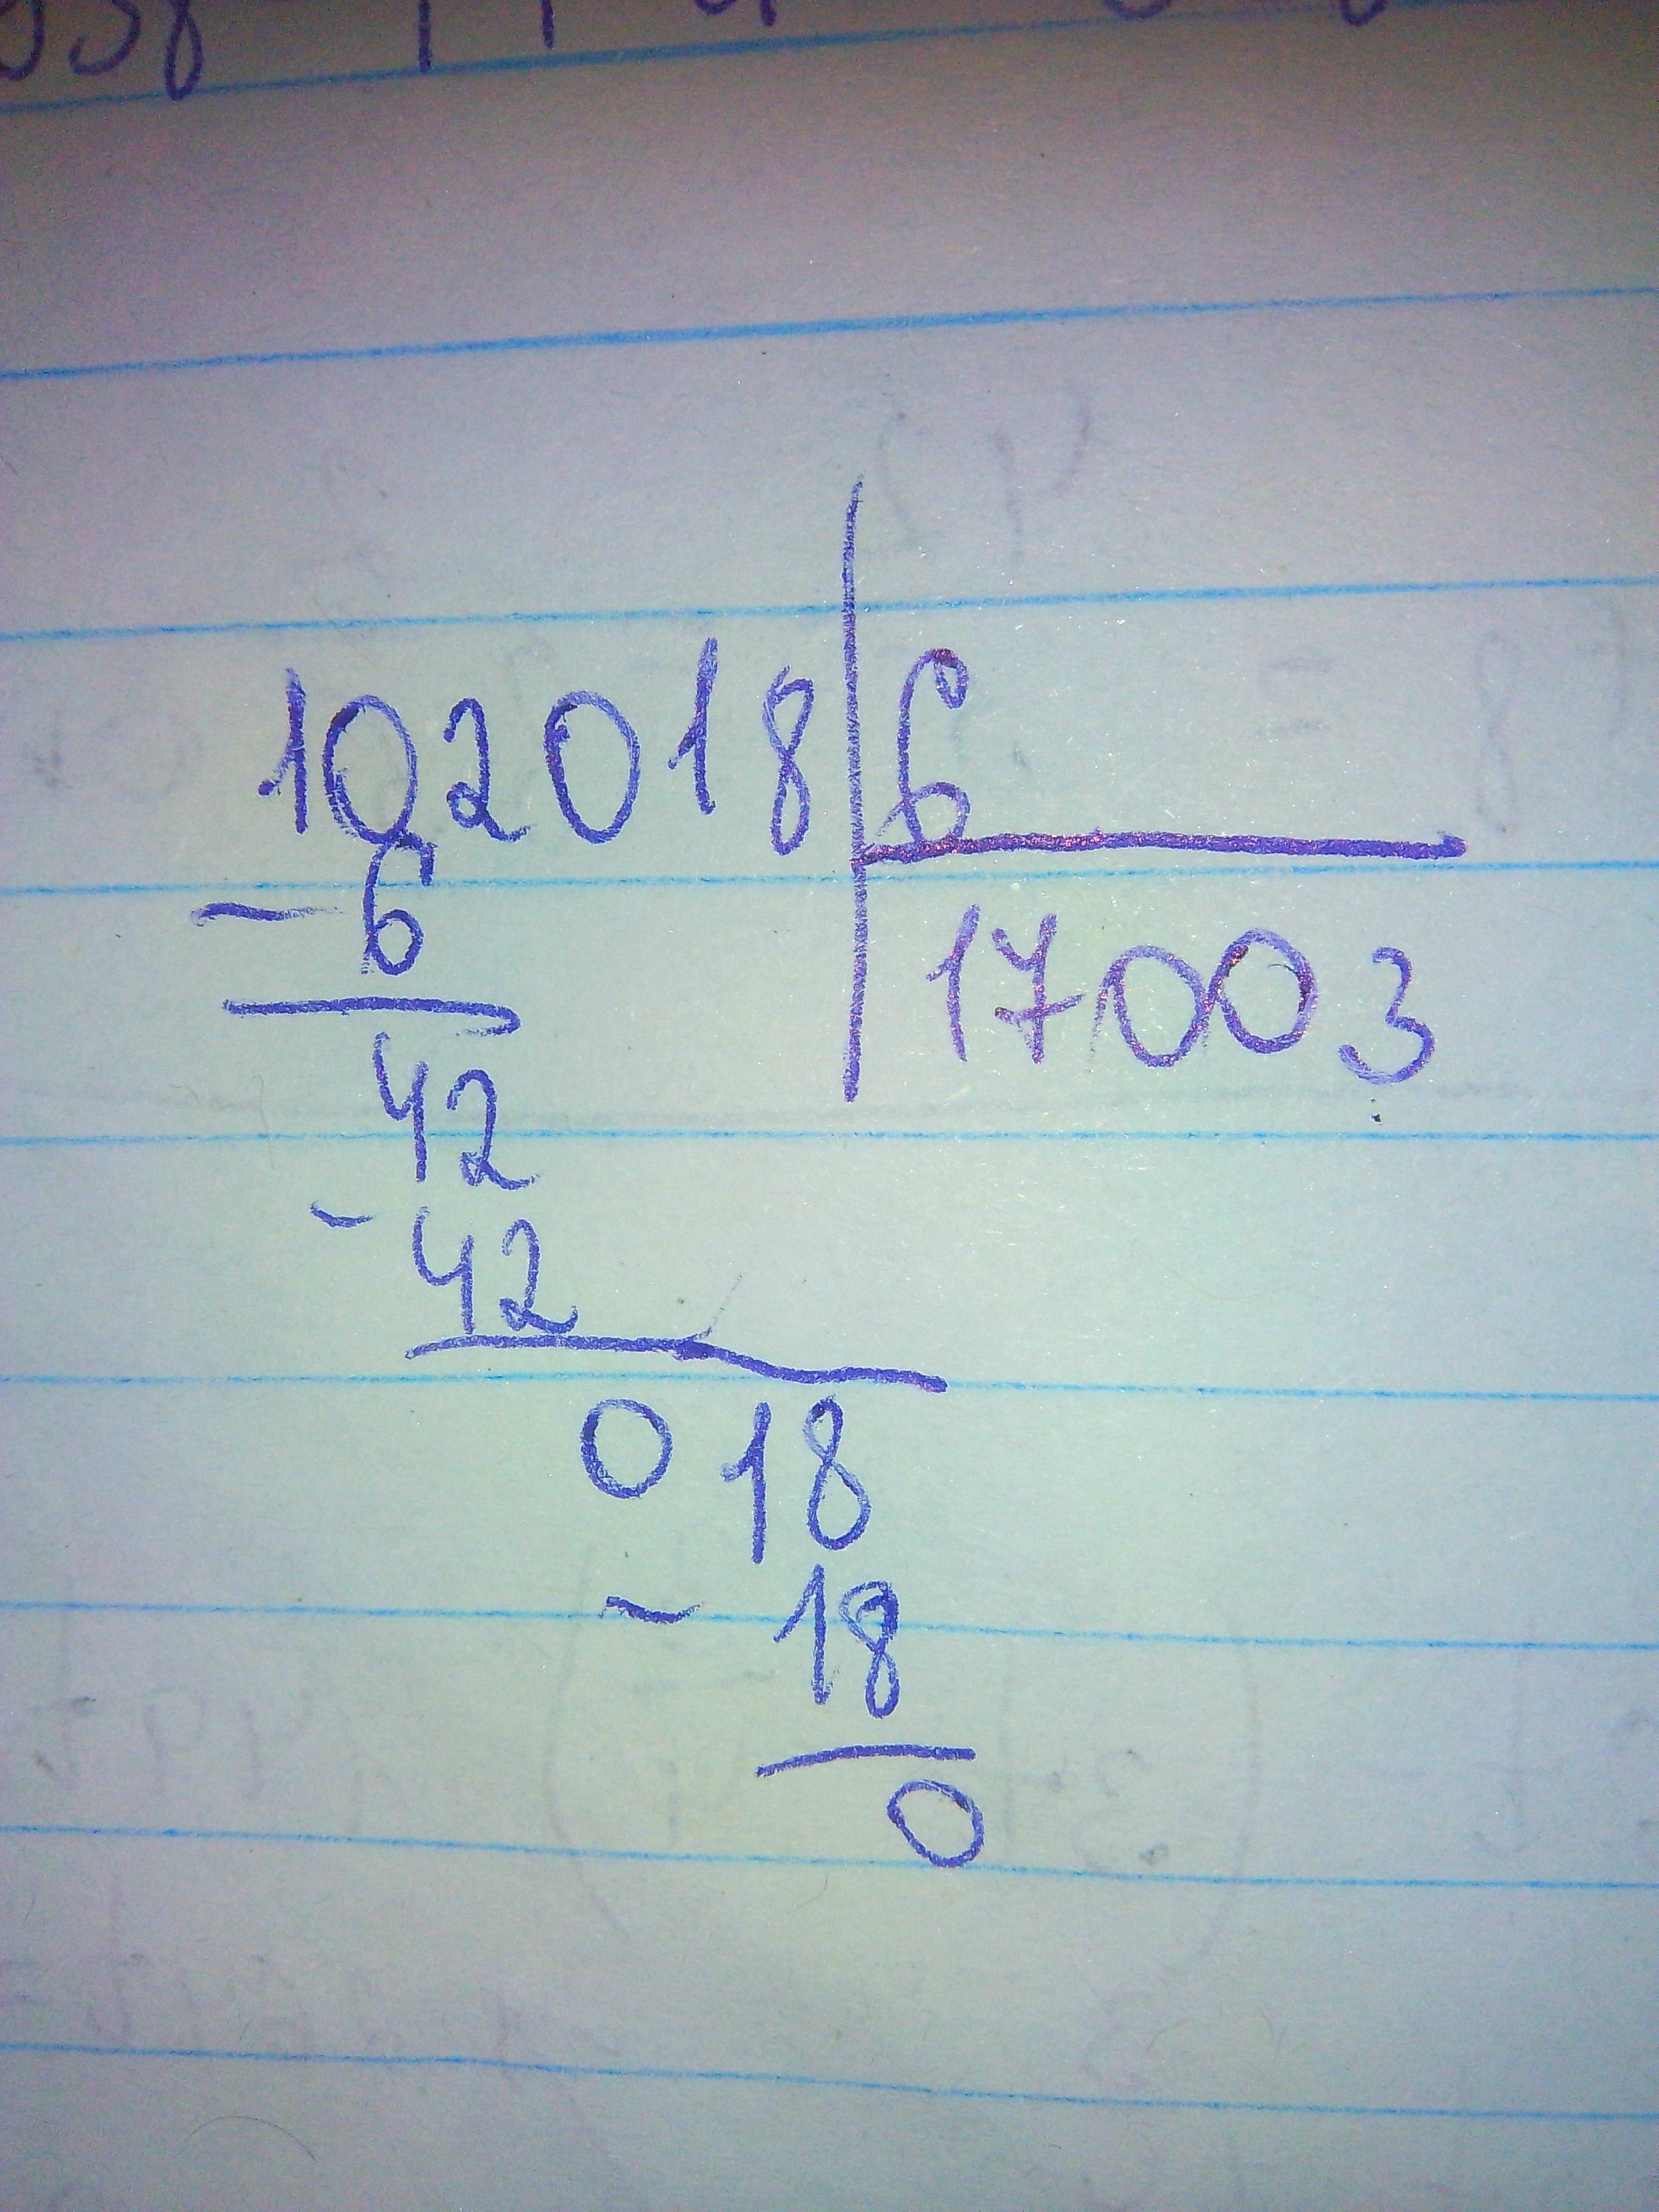 102018 6
- 6 17003
42
- 42
0 18
- 18
0